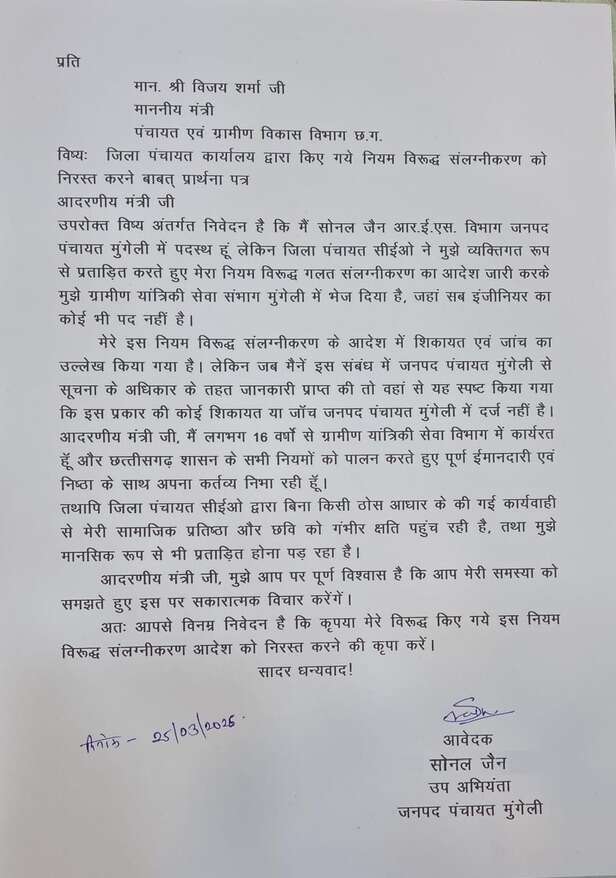 प्रति
मान. श्री विजय शर्मा जी
माननीय मंत्री
पंचायत एवं ग्रामीण विकास विभाग छ.ग.
विष्यः जिला पंचायत कार्यालय द्वारा किए गये नियम विरूद्ध संलग्नीकरण को
निरस्त करने बाबत् प्रार्थना पत्र
आदरणीय मंत्री जी
उपरोक्त विष्य अंतर्गत निवेदन है कि मैं सोनल जैन आर.ई.एस. विभाग जनपद
पंचायत मुंगेली में पदस्थ हूं लेकिन जिला पंचायत सीईओ ने मुझे व्यक्तिगत रूप
से प्रताड़ित करते हुए मेरा नियम विरूद्ध गलत संलग्नीकरण का आदेश जारी करके
मुझे ग्रामीण यांत्रिकी सेवा संभाग मुंगेली में भेज दिया है, जहां सब इंजीनियर का
कोई भी पद नहीं है।
मेरे इस नियम विरूद्ध संलग्नीकरण के आदेश में शिकायत एवं जांच का
उल्लेख किया गया है। लेकिन जब मैनें इस संबंध में जनपद पंचायत मुंगेली से
सूचना के अधिकार के तहत जानकारी प्राप्त की तो वहां से यह स्पष्ट किया गया
कि इस प्रकार की कोई शिकायत या जॉच जनपद पंचायत मुंगेली में दर्ज नहीं है।
आदरणीय मंत्री जी, मैं लगभग 16 वर्षो से ग्रामीण यांत्रिकी सेवा विभाग में कार्यरत
हूँ और छत्तीसगढ़ शासन के सभी नियमों को पालन करते हुए पूर्ण ईमानदारी एवं
निष्ठा के साथ अपना कर्तव्य निभा रही हूँ।
तथापि जिला पंचायत सीईओ द्वारा बिना किसी ठोस आधार के की गई कार्यवाही
से मेरी सामाजिक प्रतिष्ठा और छवि को गंभीर क्षति पहुंच रही है, तथा मुझे
मानसिक रूप से भी प्रताड़ित होना पड़ रहा है।
आदरणीय मंत्री जी, मुझे आप पर पूर्ण विश्वास है कि आप मेरी समस्या को
समझते हुए इस पर सकारात्मक विचार करेंगें।
अतः आपसे विनम्र निवेदन है कि कृपया मेरे विरूद्ध किए गये इस नियम
विरूद्ध संलग्नीकरण आदेश को निरस्त करने की कृपा करें।
सादर धन्यवाद!
25/03/2025
आवेदक
सोनल जैन
उप अभियंता
जनपद पंचायत मुंगेली